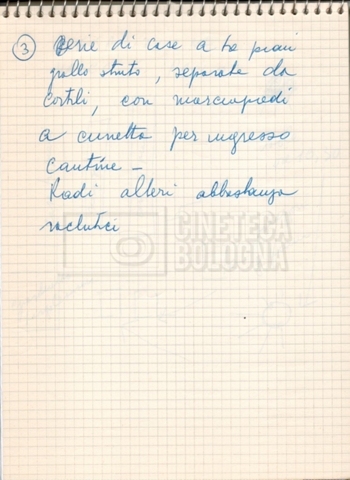 ③ Serie di case a tre piani
giallo stinto, separate da
cortili, con marciapiedi
a cunetta per ingresso
cantine -
Radi alberi abbastanza
CINETECA
BOLOGNA